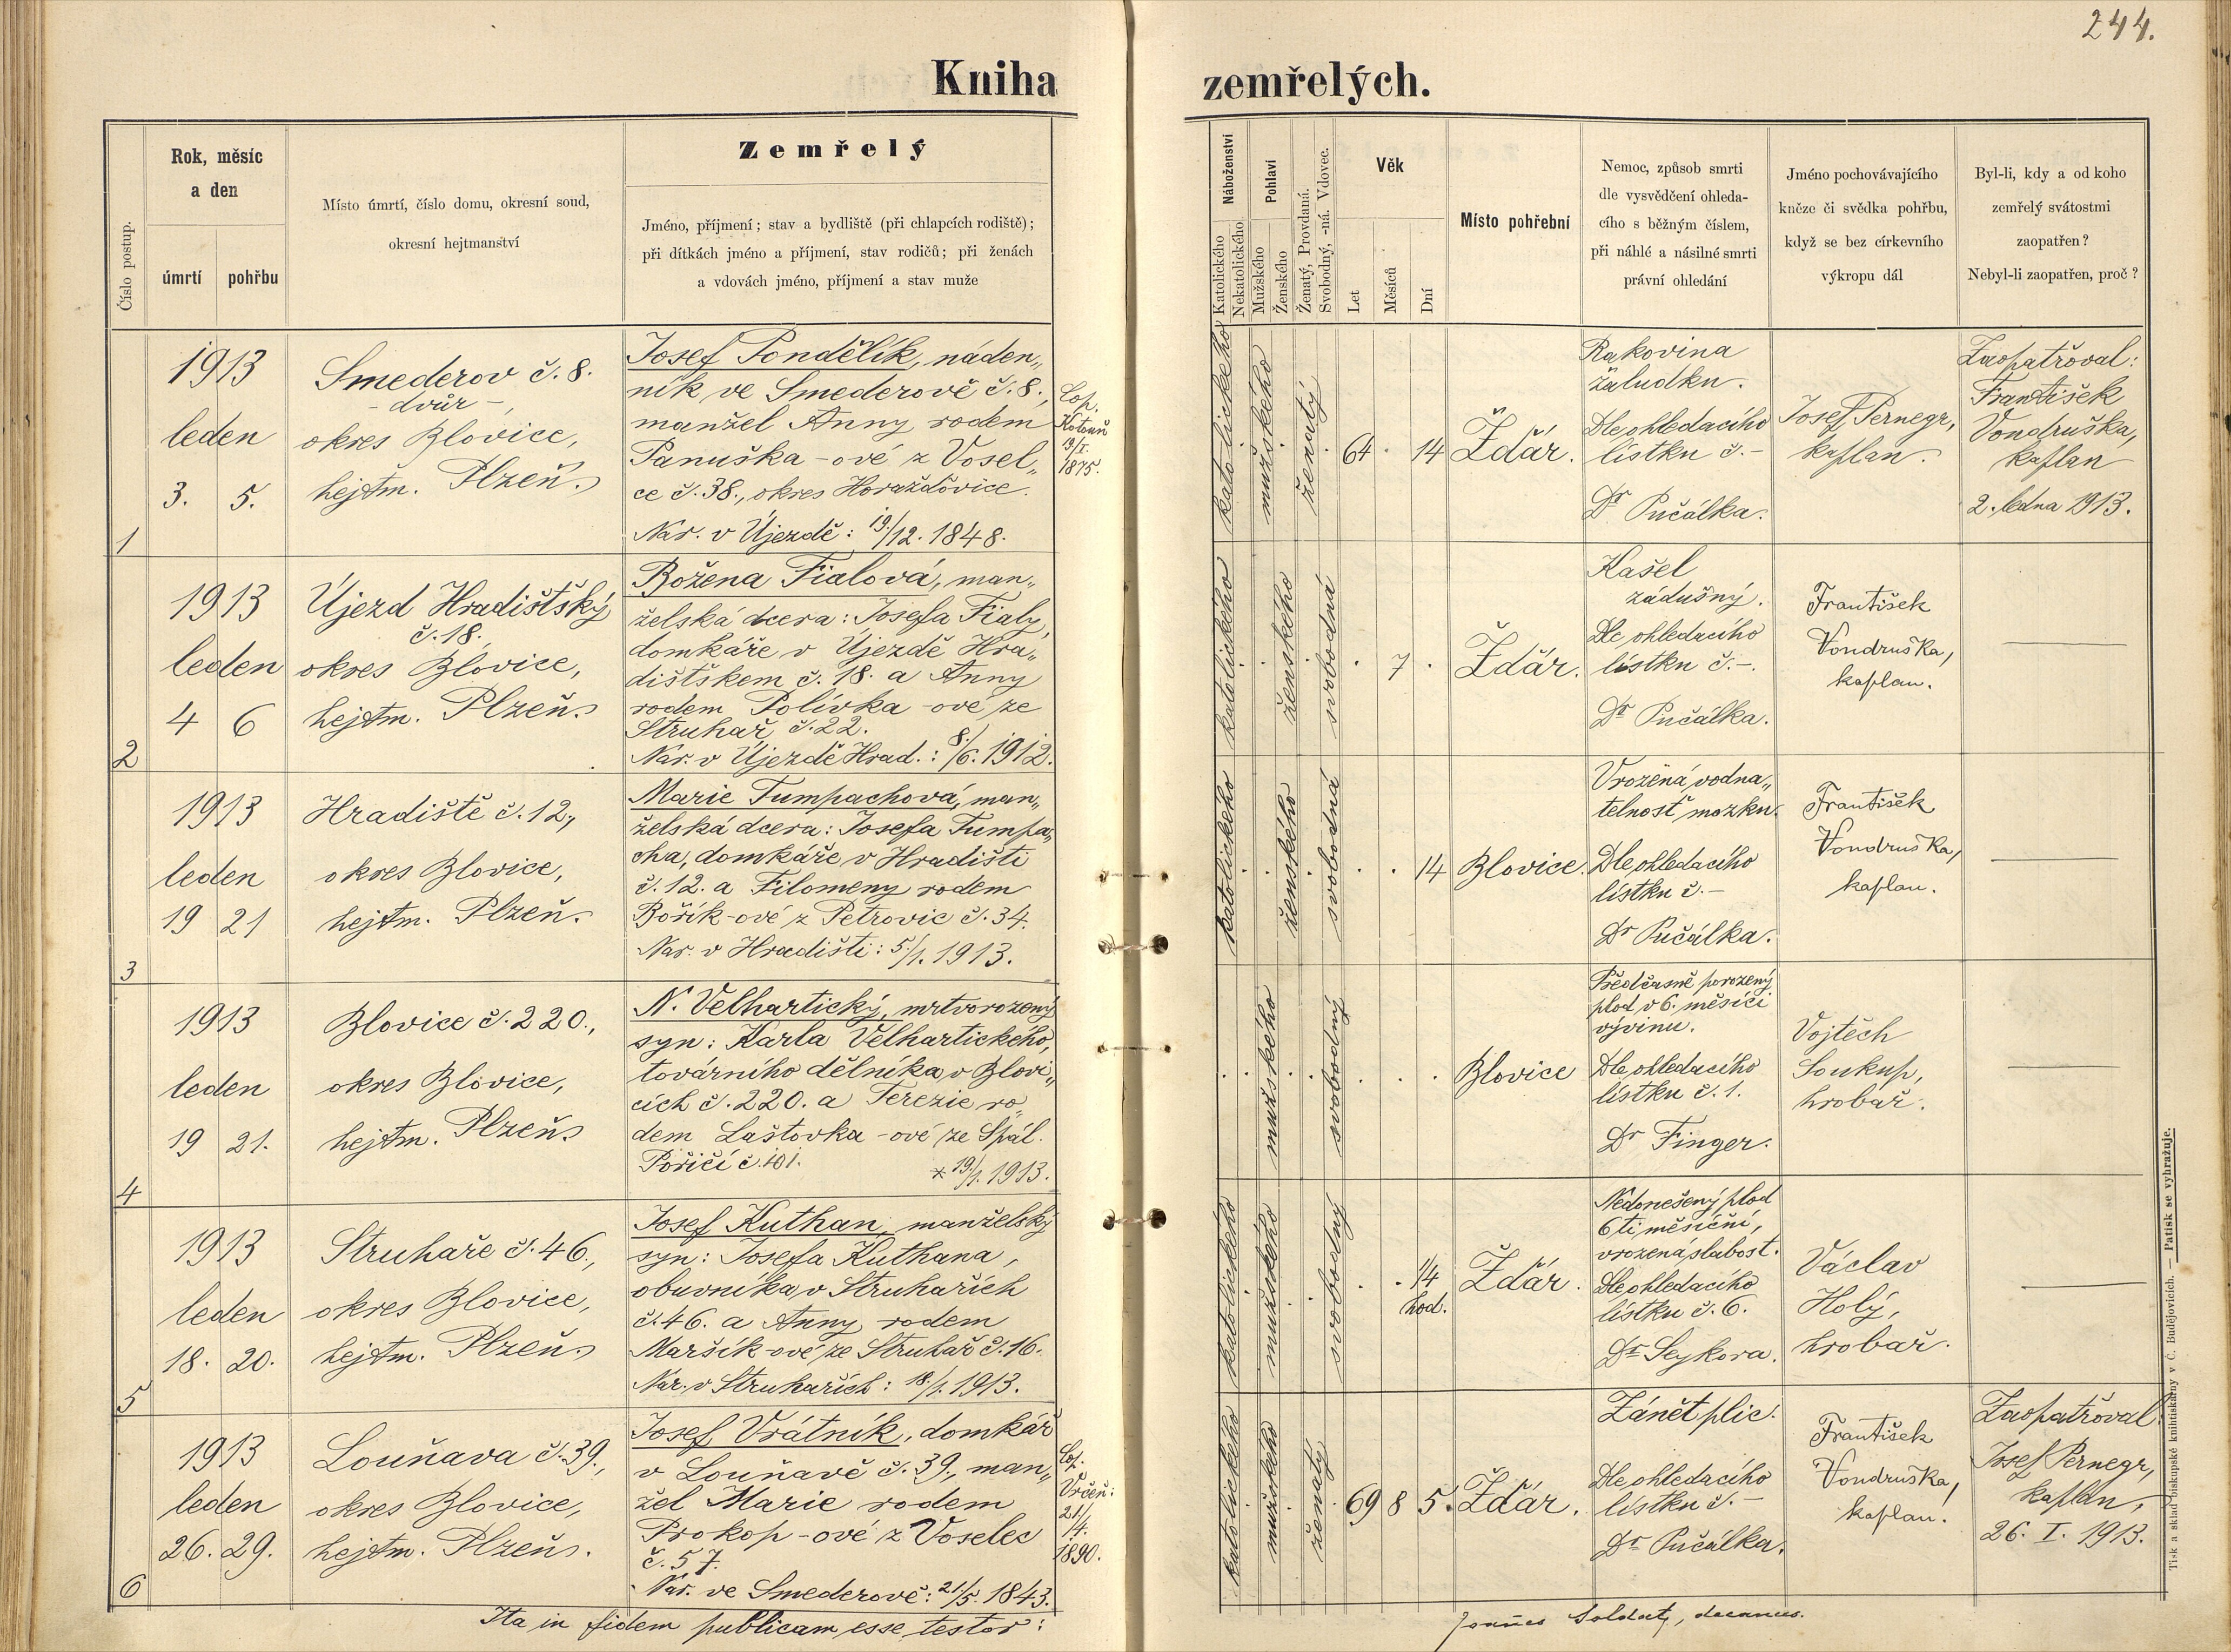 244.
Kniha zemřelých.
Číslo postup.
Rok, měsíc
a den
úmrtí
pohřbu
Místo úmrtí, číslo domu, okresní soud,
okresní hejtmanství
Zemřelý
Jméno, příjmení; stav a bydliště (při chlapcích rodiště);
při dítkách jméno a příjmení, stav rodičů; při ženách
a vdovách jméno, příjmení a stav muže
Náboženství
Katolického
Nekatolického
Pohlaví
Mužského
Ženského
Ženatý, Provdaná.
Svobodný, -ná. Vdovec.
Věk
Let
Měsíců
Dní
Místo pohřební
Nemoc, způsob smrti
dle vysvědčení ohleda-
cího s běžným číslem,
při náhlé a násilné smrti
právní ohledání
Jméno pochovávajícího
kněze či svědka pohřbu,
když se bez církevního
výkropu dál
Byl-li, kdy a od koho
zemřelý svátostmi
zaopatřen?
Nebyl-li zaopatřen, proč?
1
1913
leden
3. 5.
Smederov č. 8.
- dvůr -,
okres Blovice,
hejtm. Plzeň.
Josef Pondělík, náden„
ník ve Smederově č. 8.,
manžel Anny rodem
Panuška-ové z Vosel„
ce č. 38., okres Horažďovice.
Nar. v Újezdě: 19/12. 1848.
Cop.
Kotouň
19/I.
1875.
katolického
mužského
ženatý
64 . 14
Ždár.
Rakovina
žaludku.
Dle ohledacího
lístku č. -
Dr Pučálka.
Josef Pernegr,
kaplan.
Zaopatřoval:
František
Vondruška,
kaplan
2. ledna 1913.
2
1913
leden
4 6
Újezd Hradištský
č. 18.,
okres Blovice,
hejtm. Plzeň.
Božena Fialová, man„
želská dcera: Josefa Fialy,
domkáře v Újezdě Hra„
dištském č. 18. a Anny
rodem Polívka-ové ze
Struhař č. 22.
Nar. v Újezdě Hrad.: 8./6. 1912.
katolického
ženského
svobodná
. 7 .
Ždár.
Kašel
zádušný.
Dle ohledacího
lístku č. -.
Dr Pučálka.
František
Vondruška,
kaplan.
3
1913
leden
19 21
Hradiště č. 12.,
okres Blovice,
hejtm. Plzeň.
Marie Tumpachová, man„
želská dcera: Josefa Tumpa„
cha, domkáře v Hradišti
č. 12. a Filomeny rodem
Bořík-ové z Petrovic č. 34.
Nar. v Hradišti: 5./1. 1913.
katolického
ženského
svobodná
. . 14
Blovice.
Vrozená vodna„
telnosť mozku.
Dle ohledacího
lístku č. -
Dr Pučálka.
František
Vondruška,
kaplan.
4
1913
leden
19 21.
Blovice č. 220.,
okres Blovice,
hejtm. Plzeň.
N. Velhartický, mrtvorozený
syn: Karla Velhartického,
továrního dělníka v Blovi„
cích č. 220. a Terezie ro„
dem Laštovka-ové ze Spál.
Poříčí č. 101.
* 19./1. 1913.
mužského
svobodný
. . .
Blovice
Předčasně porozený
plod v 6. měsíci
vývinu.
Dle ohledacího
lístku č. 1.
Dr Finger.
Vojtěch
Soukup,
hrobař.
5
1913
leden
18. 20.
Struhaře č. 46.,
okres Blovice,
hejtm. Plzeň.
Josef Kuthan, manželský
syn: Josefa Kuthana,
obuvníka v Struhařích
č. 46. a Anny rodem
Maršík-ové ze Struhař č. 16.
Nar. v Struhařích: 18./1. 1913.
katolického
mužského
svobodný
. . 1/4
hod.
Ždár.
Nedonešený plod
6ti měsíční,
vrozená slabost.
Dle ohledacího
lístku č. 6.
Dr Seykora.
Václav
Holý,
hrobař.
6
1913
leden
26. 29.
Louňava č. 39.,
okres Blovice,
hejtm. Plzeň.
Josef Vrátník, domkář
v Louňavě č. 39., man„
žel Marie rodem
Prokop-ové z Voselec
č. 57.
Nar. ve Smederově: 21/5. 1843.
Cop.
Vrčeň:
21/4.
1890.
katolického
mužského
ženatý
69 8 5.
Ždár.
Zánět plic.
Dle ohledacího
lístku č. -
Dr Pučálka.
František
Vondruška,
kaplan.
Zaopatřoval
Josef Pernegr,
kaplan,
26. I. 1913.
Ita in fidem publicam esse testor:
Joannes Soldát, decanus.
Tisk a sklad biskupské knihtiskárny v Č. Budějovicích. — Patisk se vyhražuje.